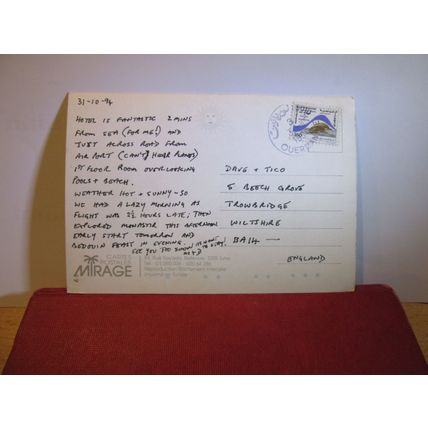 31-10-94
HOTEL IS FANTASTIC 2 MINS
FROM SEA (FOR ME!) AND
JUST ACROSS ROAD FROM
AIRPORT (CAN'T HEAR PLANES)
1ST FLOOR ROOM OVERLOOKING
POOLS + BEACH.
WEATHER HOT + SUNNY - SO
WE HAD A LAZY MORNING AS
FLIGHT WAS 2½ HOURS LATE; THEN
EXPLORED MONASTIR THIS AFTERNOON
EARLY START TOMORROW AND
BEDOUIN FEAST IN EVENING.
SEE YOU
DAVE + TICO
5 BEECH GROVE
TROWBRIDGE
WILTSHIRE
BA14 —
ENGLAND
CARTES
POSTALES
MIRAGE
Reproduction Strictement Interdite